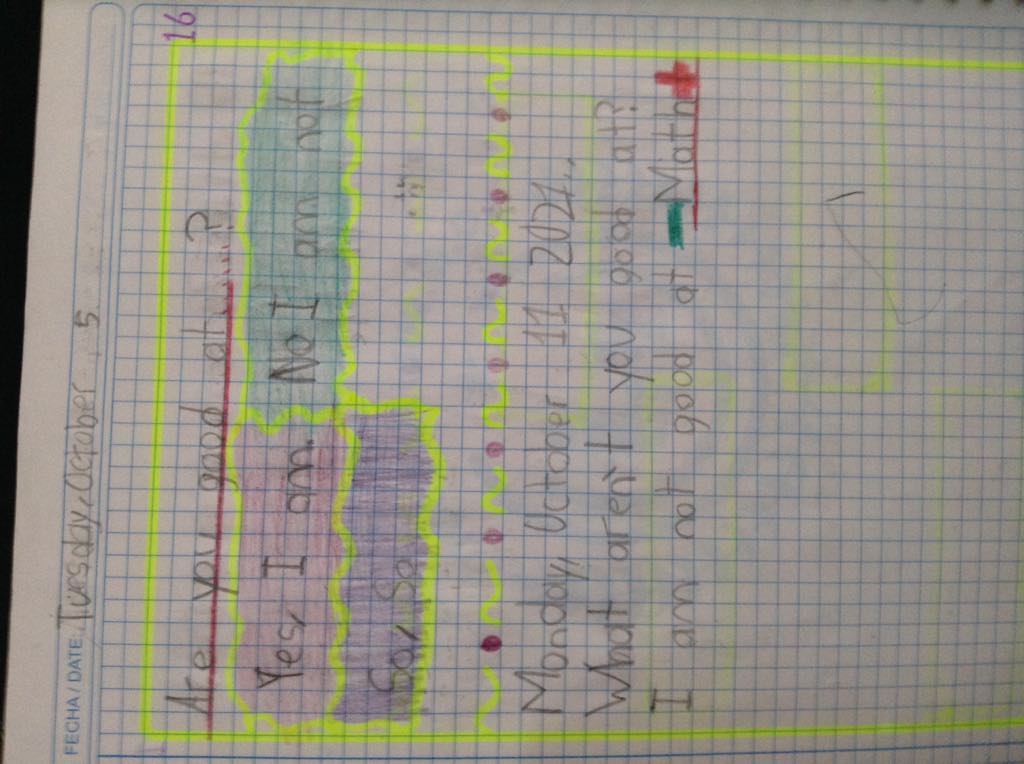 16
FECHA / DATE: Tuesday, October 5
Are you good at......?
Yes, I am. No I am not
So, So
Monday, October 11 2021..
What aren't you good at?
I am not good at Math